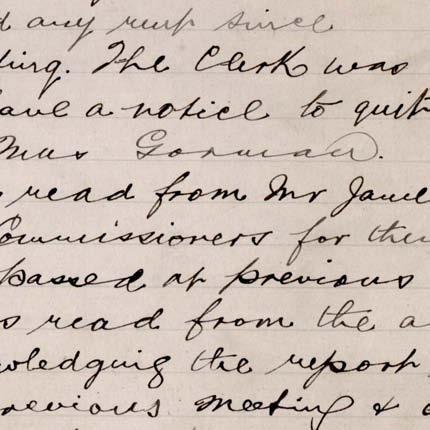 d any rent since
ting. The Clerk was
ave a notice to quit
Mrs Gorman.
read from Mr Jame
Commissioners for the
passed at previous
s read from the a
wledging the report
revious meeting &